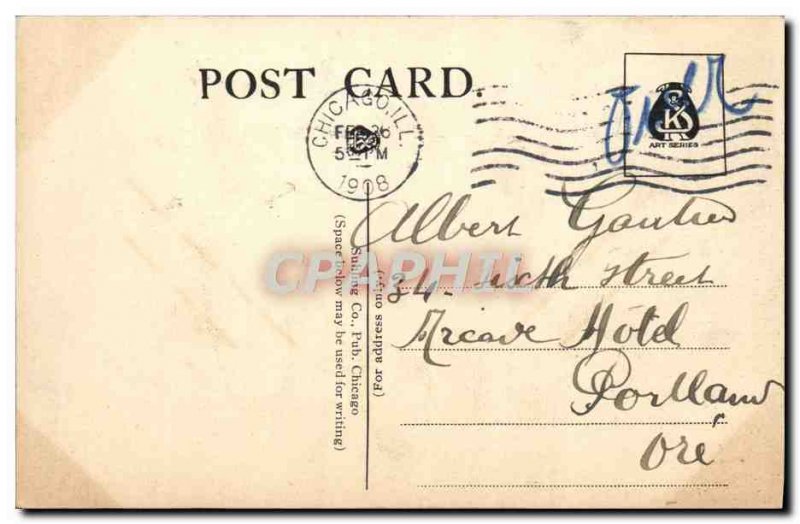 POST CARD.
CHICAGO, ILL.
FEB 26
5 PM
1908
K
ART SERIES
Albert Gautier
34 - sixth street
Arcade Hôtel
Portland
Ore
(For address only.)
Suhling Co., Pub. Chicago
(Space below may be used for writing)
CPAPHIL